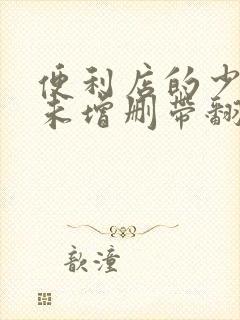 便利店的少
未增删带翻
歆潼